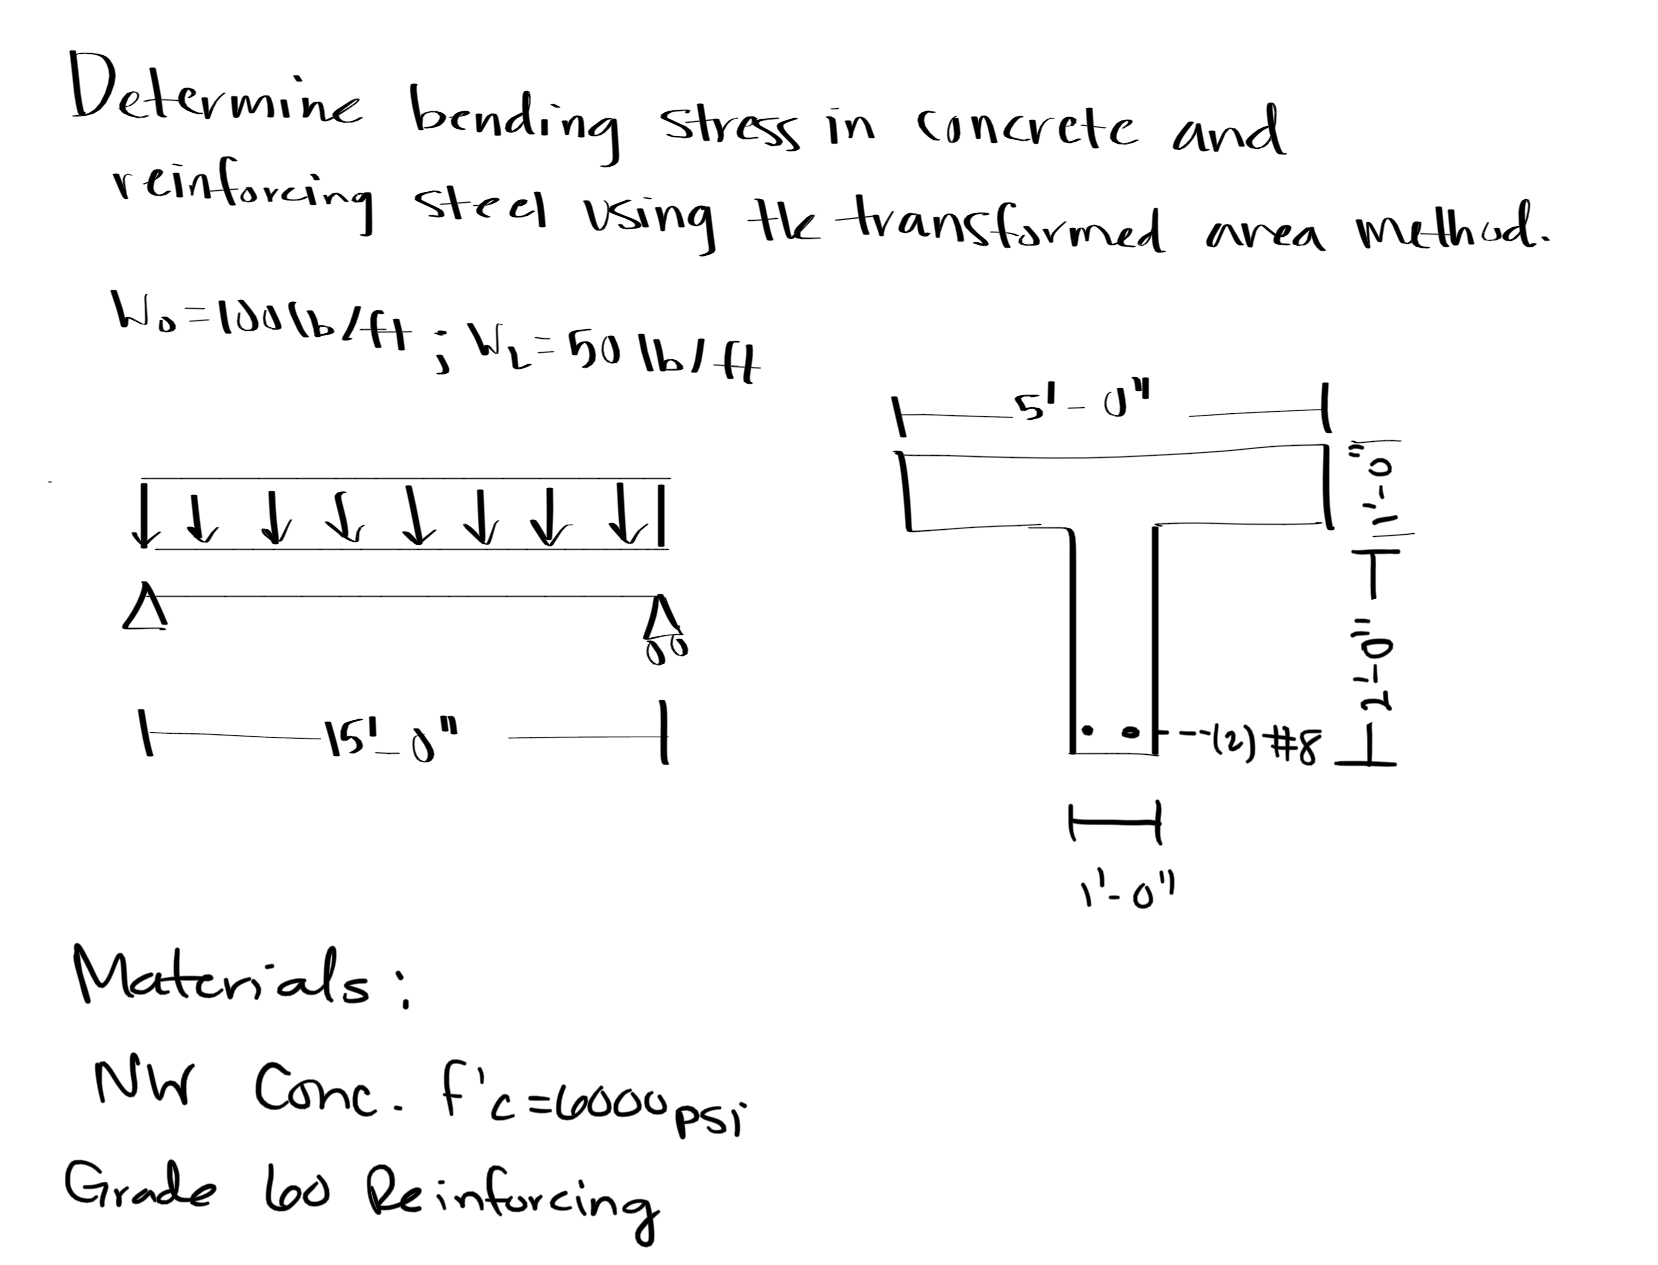 Determine bending stress in concrete and
reinforcing steel using the transformed area method.
W_D=100lb/ft ; W_L=50 lb/ft
5'-0"
1'-0"
2'-0"
15'-0"
(2) #8
1'-0"
Materials:
NW Conc. f'c=6000psi
Grade 60 Reinforcing